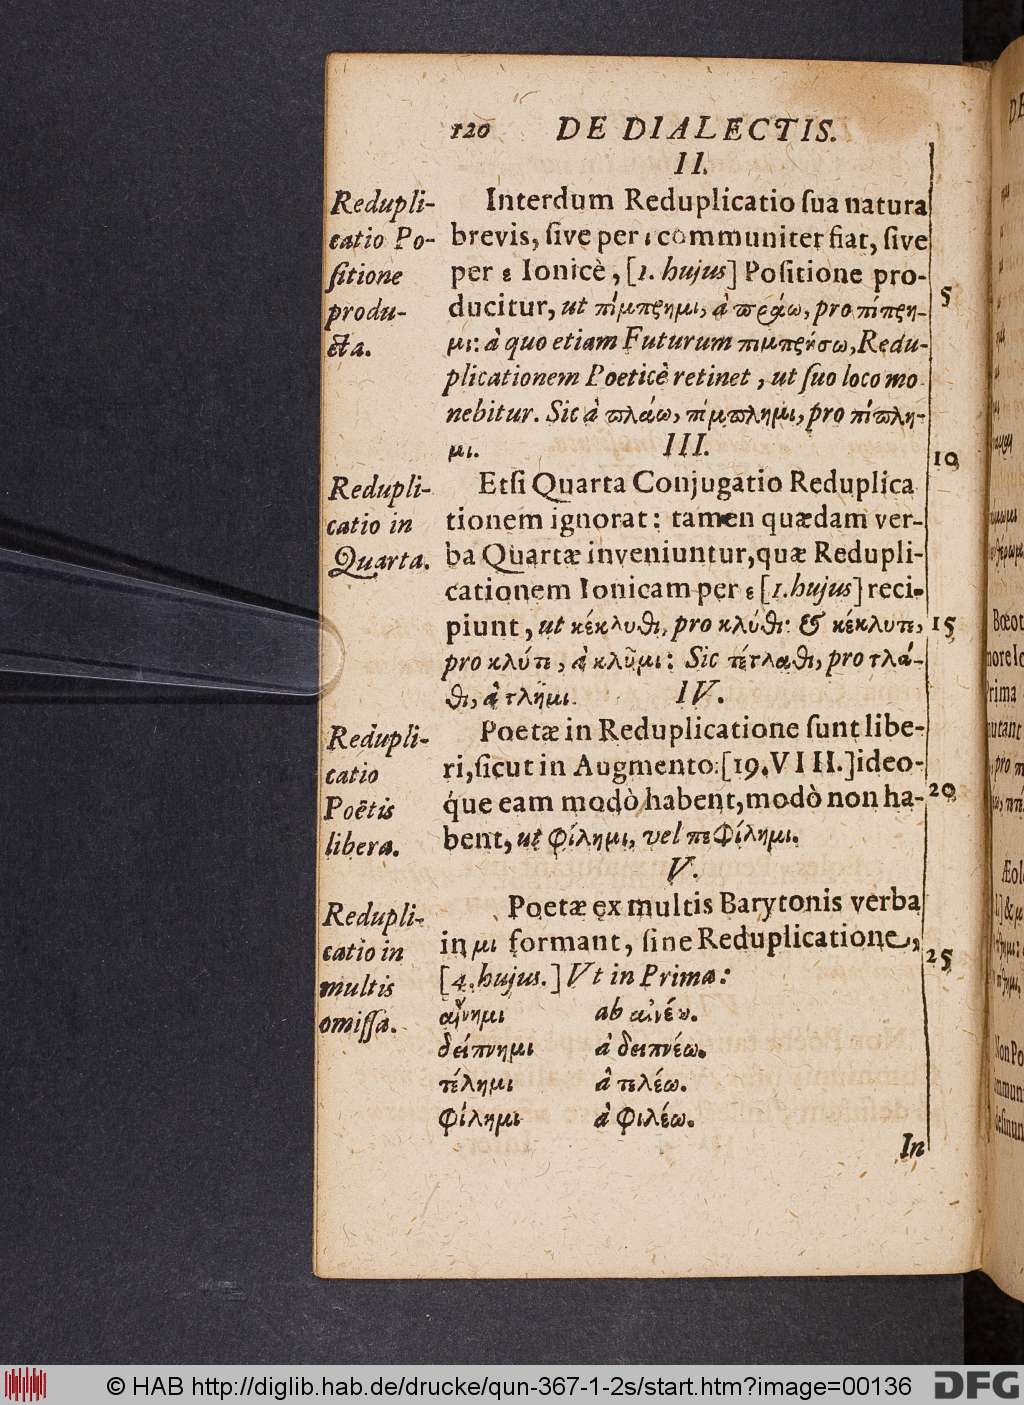 120 DE DIALECTIS.
II.
Redupli-
catio Po-
ſitione
produ-
cta.
Interdum Reduplicatio ſua natura
brevis, ſive per ι communiter fiat, ſive
per ε Ionicè, [1. hujus] Poſitione pro-
ducitur, ut πίμπρημι, à πράω, pro πίπρη-
μι: à quo etiam Futurum πιμπρήσω, Redu-
plicationem Poeticè retinet, ut ſuo loco mo
nebitur. Sic à πλάω, πίμπλημι, pro πίπλη-
μι.
5
III.
10
Redupli-
catio in
Quarta.
Etſi Quarta Conjugatio Reduplica
tionem ignorat: tamen quædam ver-
ba Quartæ inveniuntur, quæ Redupli-
cationem Ionicam per ε [1. hujus] reci-
piunt, ut κέκλυθι, pro κλύθι: & κέκλυτε,
pro κλύτε, à κλῦμι: Sic τέτλαθι, pro τλά-
θι, à τλῆμι.
15
IV.
Redupli-
catio
Poëtis
libera.
Poetæ in Reduplicatione ſunt libe-
ri, ſicut in Augmento: [19. VIII.] ideo-
que eam modò habent, modò non ha-
bent, ut φίλημι, vel πεφίλημι.
20
V.
Redupli-
catio in
multis
omiſſa.
Poetæ ex multis Barytonis verba
in μι formant, ſine Reduplicatione,
[4. hujus.] Vt in Prima:
αἴνημι ab αἰνέω.
δείπνημι à δειπνέω.
τέλημι à τελέω.
φίλημι à φιλέω.
25
In
© HAB http://diglib.hab.de/drucke/qun-367-1-2s/start.htm?image=00136
DFG